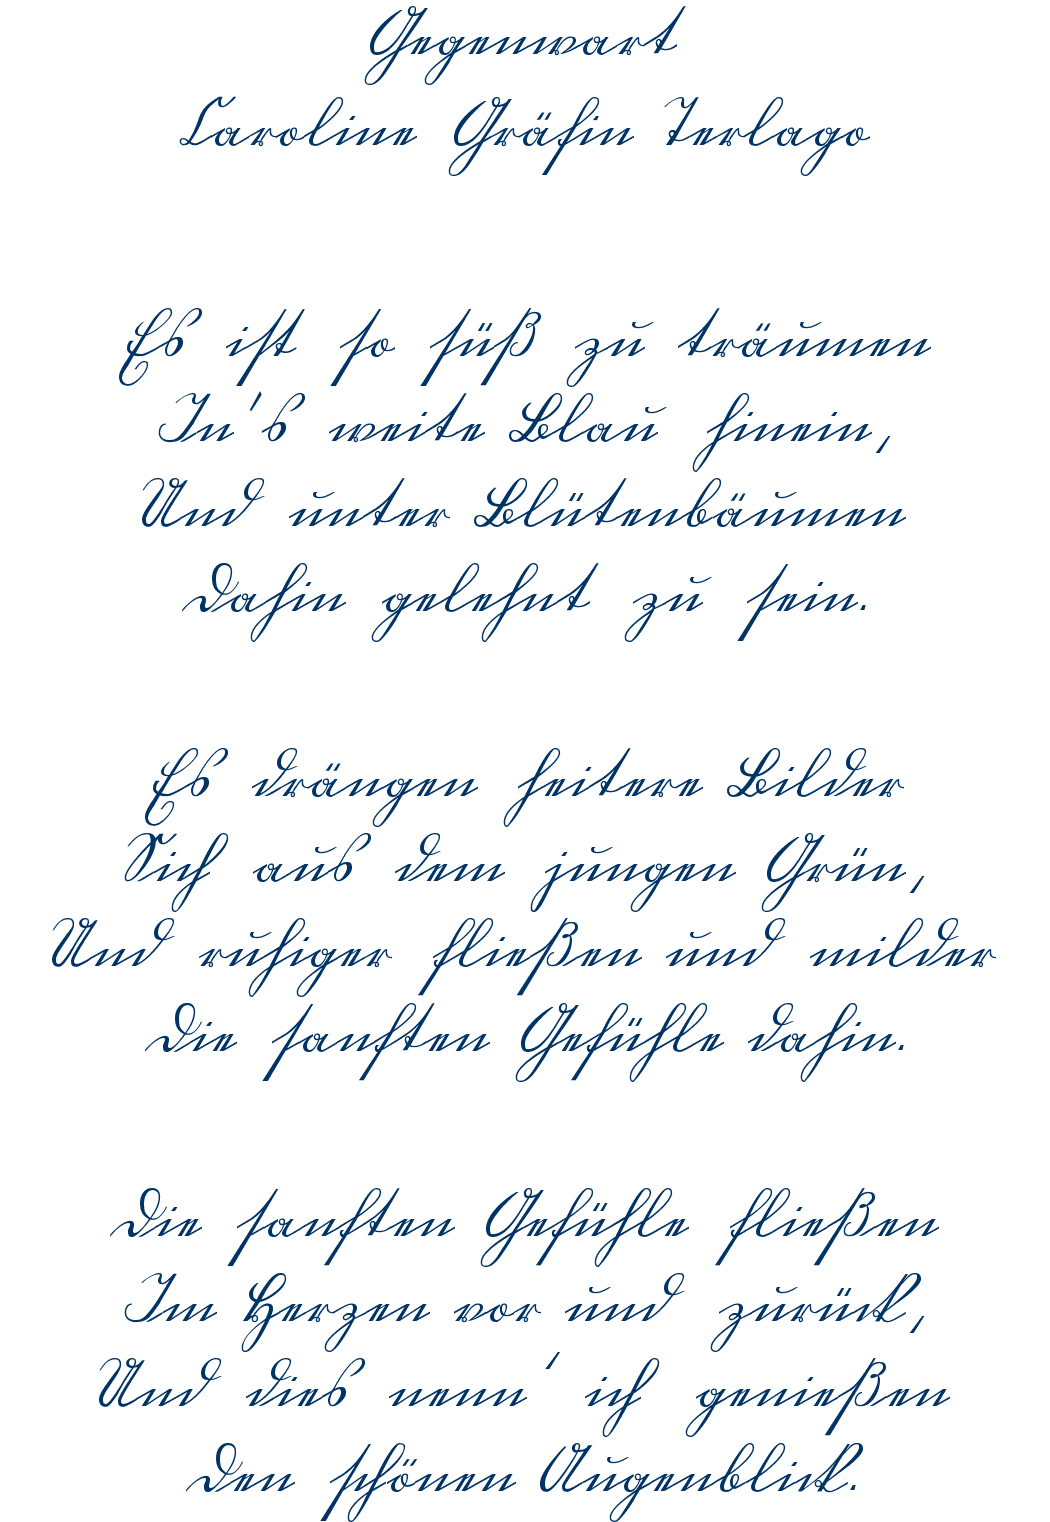 Gegenwart
Caroline Gräfin Terlago
Es ist so süß zu träumen
In's weite Blau hinein,
Und unter Blütenbäumen
Dahin gelehnt zu sein.
Es drängen heitere Bilder
Sich aus dem jungen Grün,
Und ruhiger fließen und milder
Die sanften Gefühle dahin.
Die sanften Gefühle fließen
Im Herzen vor und zurück,
Und dies nenn' ich genießen
Den schönen Augenblick.